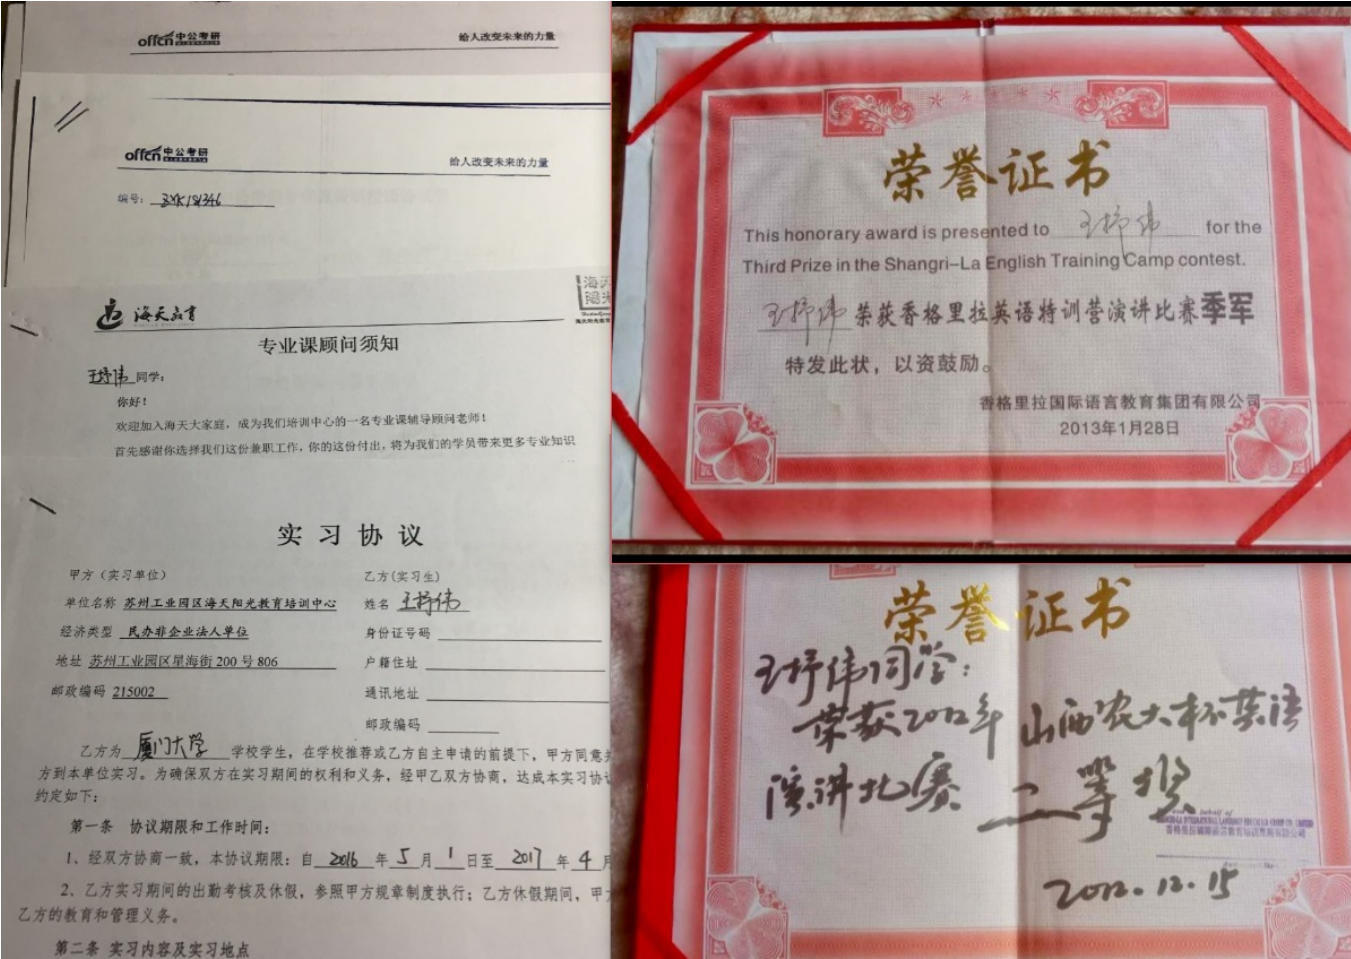 offcn 中公考研 给人改变未来的力量
offcn 中公考研 给人改变未来的力量
编号：
海天教育
专业课顾问须知
王抒伟同学：
你好！
欢迎加入海天大家庭，成为我们培训中心的一名专业课辅导顾问老师！
首先感谢你选择我们这份兼职工作，你的这份付出，将为我们的学员带来更多专业知识
实习协议
甲方（实习单位） 乙方(实习生)
单位名称 苏州工业园区海天阳光教育培训中心 姓名 王抒伟
经济类型 民办非企业法人单位 身份证号码
地址 苏州工业园区星海街 200 号 806 户籍住址
邮政编码 215002 通讯地址
邮政编码
乙方为 厦门大学 学校学生，在学校推荐或乙方自主申请的前提下，甲方同意
方到本单位实习。为确保双方在实习期间的权利和义务，经甲乙双方协商，达成本实习协议
约定如下：
第一条 协议期限和工作时间：
1、经双方协商一致，本协议期限：自 2016 年 5 月 1 日至 2017 年 4 月
2、乙方实习期间的出勤考核及休假，参照甲方规章制度执行；乙方休假期间，甲方
乙方的教育和管理义务。
第二条 实习内容及实习地点
荣誉证书
This honorary award is presented to 王抒伟 for the
Third Prize in the Shangri-La English Training Camp contest.
王抒伟 荣获香格里拉英语特训营演讲比赛季军
特发此状，以资鼓励。
香格里拉国际语言教育集团有限公司
2013年1月28日
荣誉证书
王抒伟同学：
荣获2012年 山西农大杯英语
演讲比赛 二等奖
2012.12.15